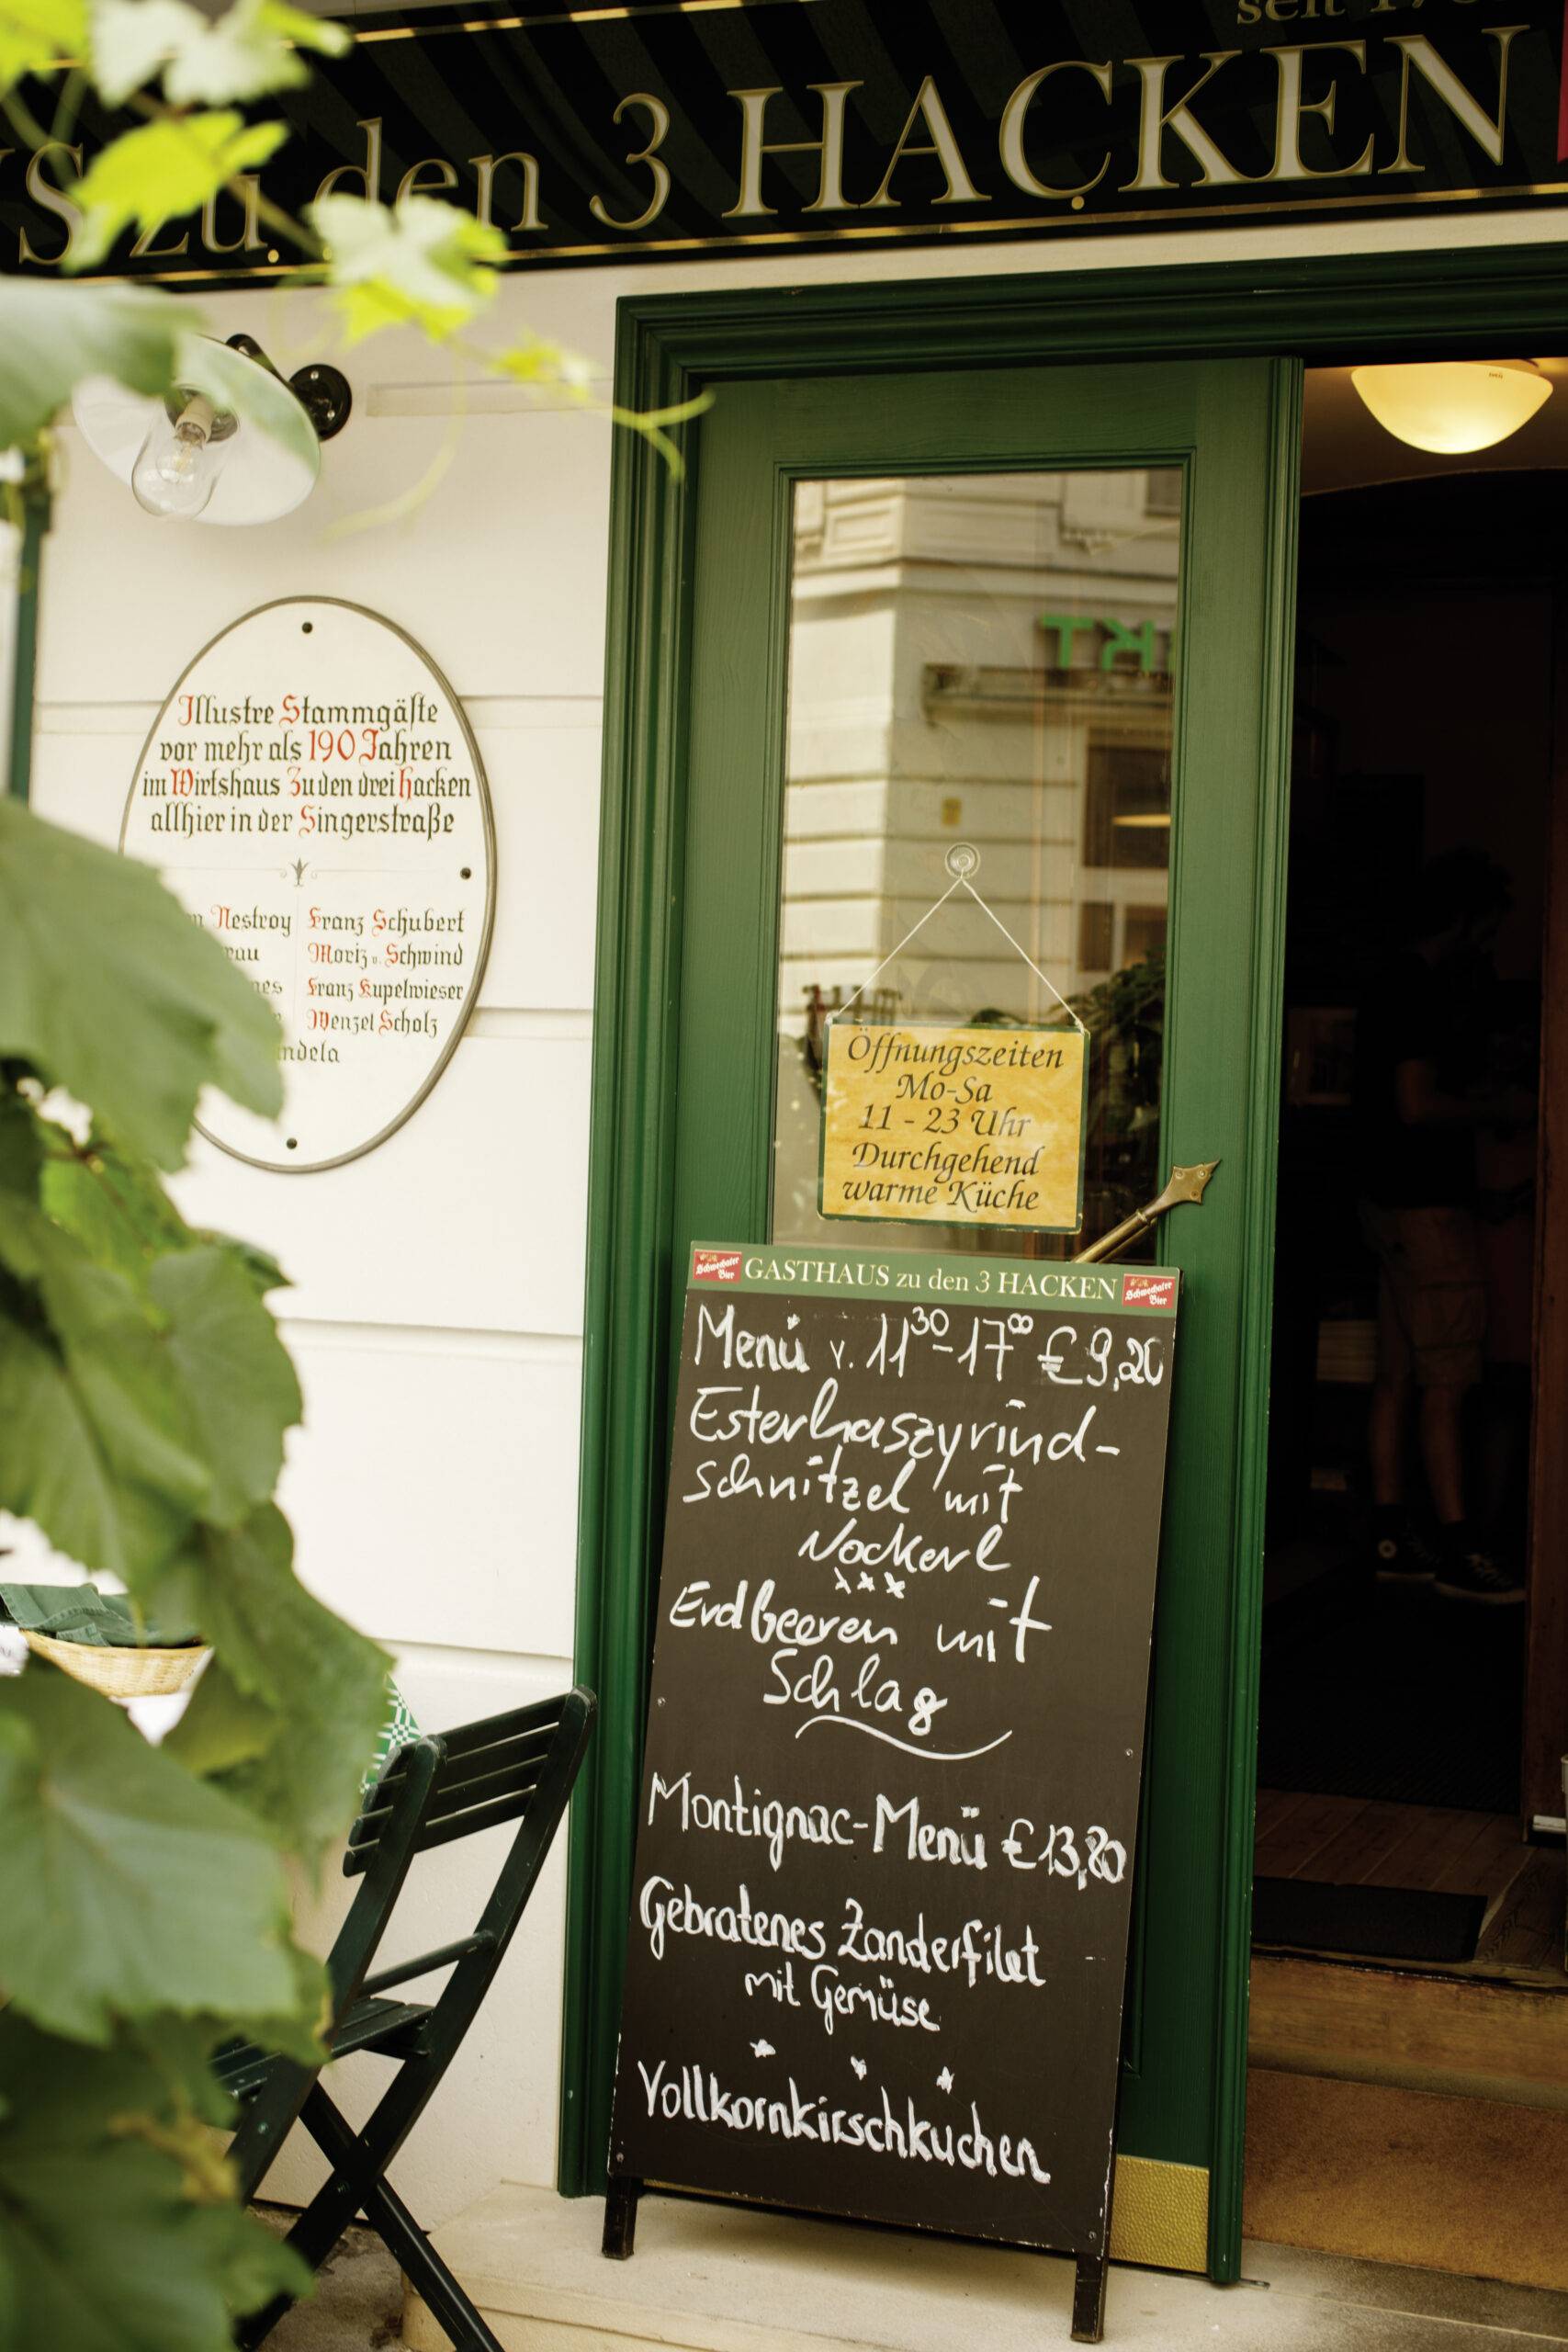 seit
S zu den 3 HACKEN
Illustre Stammgäste
vor mehr als 190 Jahren
im Wirtshaus Zu den drei Hacken
allhier in der Singerstraße
Nestroy Franz Schubert
Moriz v. Schwind
Franz Kupelwieser
Wenzel Scholz
Öffnungszeiten
Mo-Sa
11 - 23 Uhr
Durchgehend
warme Küche
Schwechater Bier GASTHAUS zu den 3 HACKEN Schwechater Bier
Menü v. 11 30 - 17 00 € 9,20
Esterhaszyrind-
schnitzel mit
Nockerl
xxx
Erdbeeren mit
Schlag
Montignac-Menü € 13,80
Gebratenes Zanderfilet
mit Gemüse
Vollkornkirschkuchen